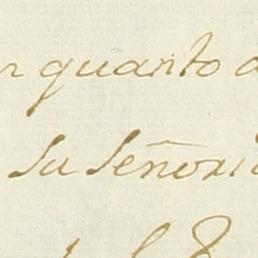 quanto
Su Señori